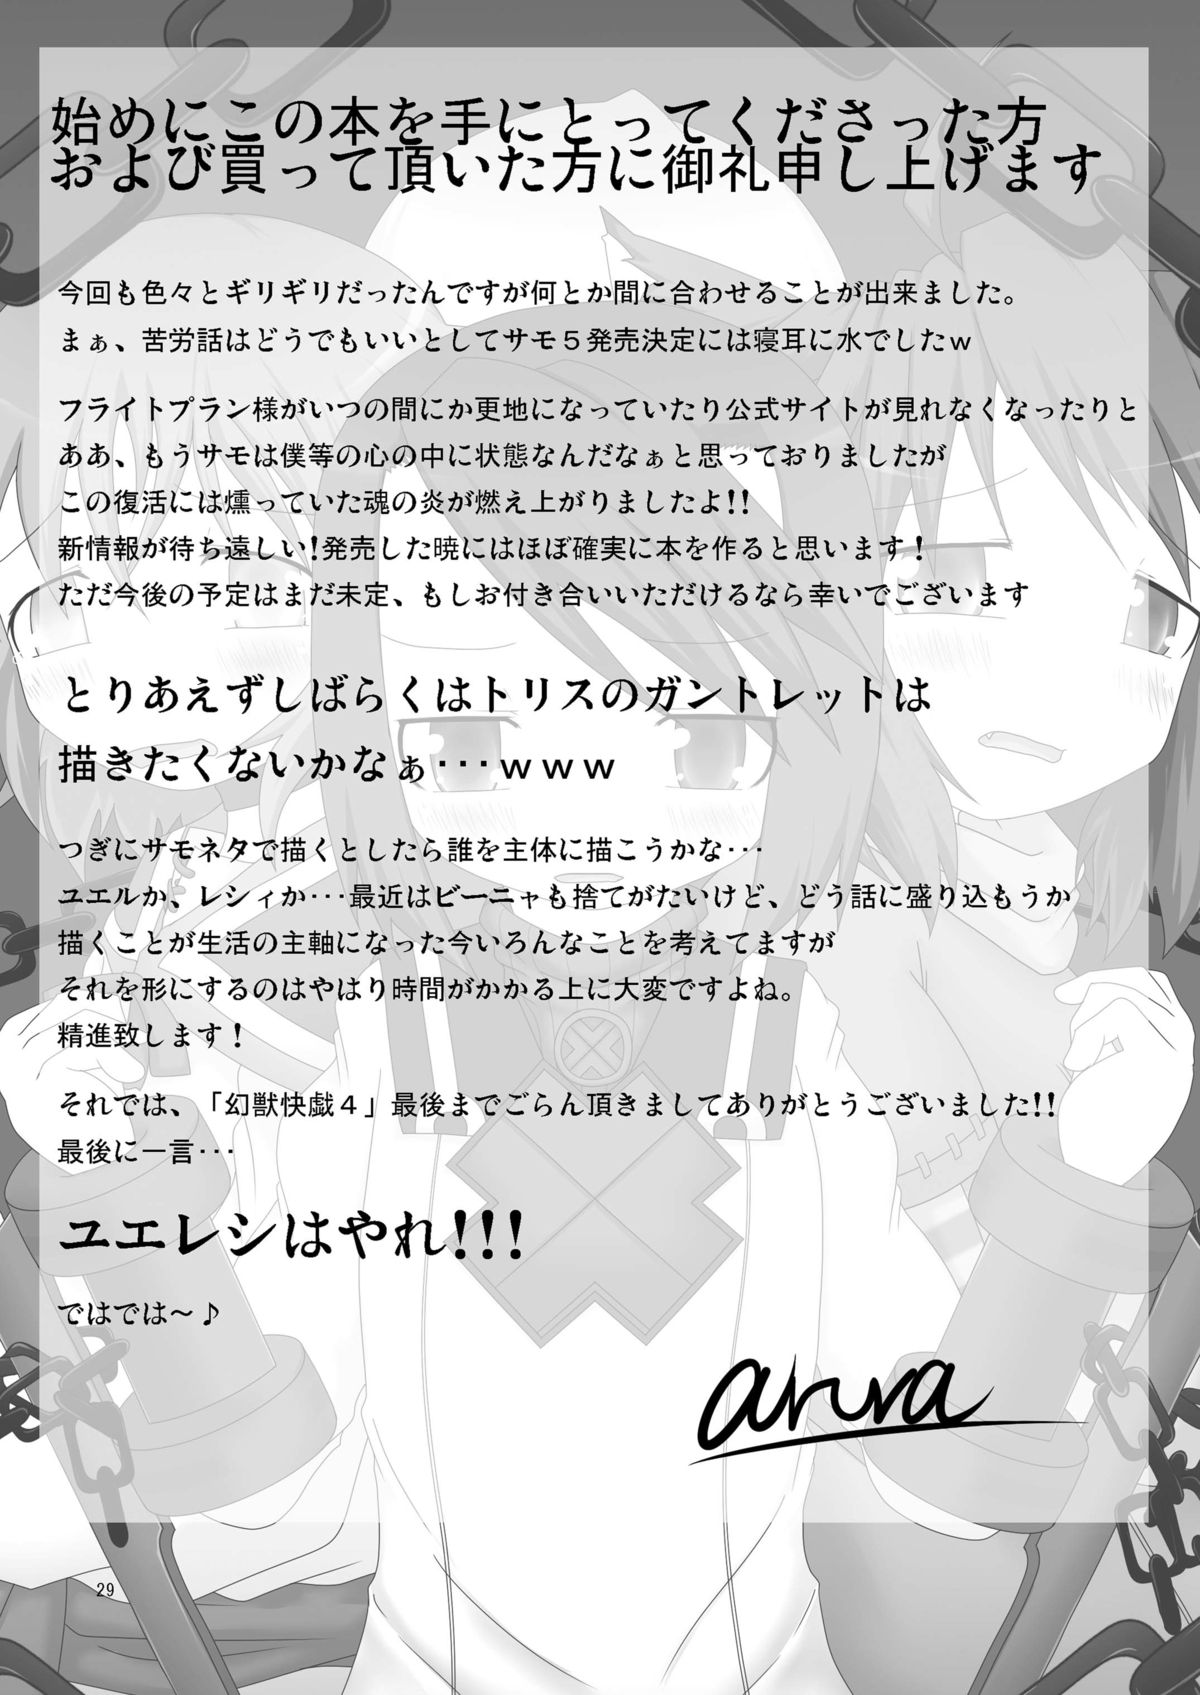 始めにこの本を手にとってくださった方
および買って頂いた方に御礼申し上げます
今回も色々とギリギリだったんですが何とか間に合わせることが出来ました。
まぁ、苦労話はどうでもいいとしてサモ５発売決定には寝耳に水でしたｗ
フライトプラン様がいつの間にか更地になっていたり公式サイトが見れなくなったりと
ああ、もうサモは僕等の心の中に状態なんだなぁと思っておりましたが
この復活には燻っていた魂の炎が燃え上がりましたよ!!
新情報が待ち遠しい!発売した暁にはほぼ確実に本を作ると思います!
ただ今後の予定はまだ未定、もしお付き合いいただけるなら幸いでございます
とりあえずしばらくはトリスのガントレットは
描きたくないかなぁ･･･ｗｗｗ
つぎにサモネタで描くとしたら誰を主体に描こうかな･･･
ユエルか、レシィか･･･最近はビーニャも捨てがたいけど、どう話に盛り込もうか
描くことが生活の主軸になった今いろんなことを考えてますが
それを形にするのはやはり時間がかかる上に大変ですよね。
精進致します!
それでは、「幻獣快戯４」最後までごらん頂きましてありがとうございました!!
最後に一言･･･
ユエレシはやれ!!!
ではでは～♪
anra
29